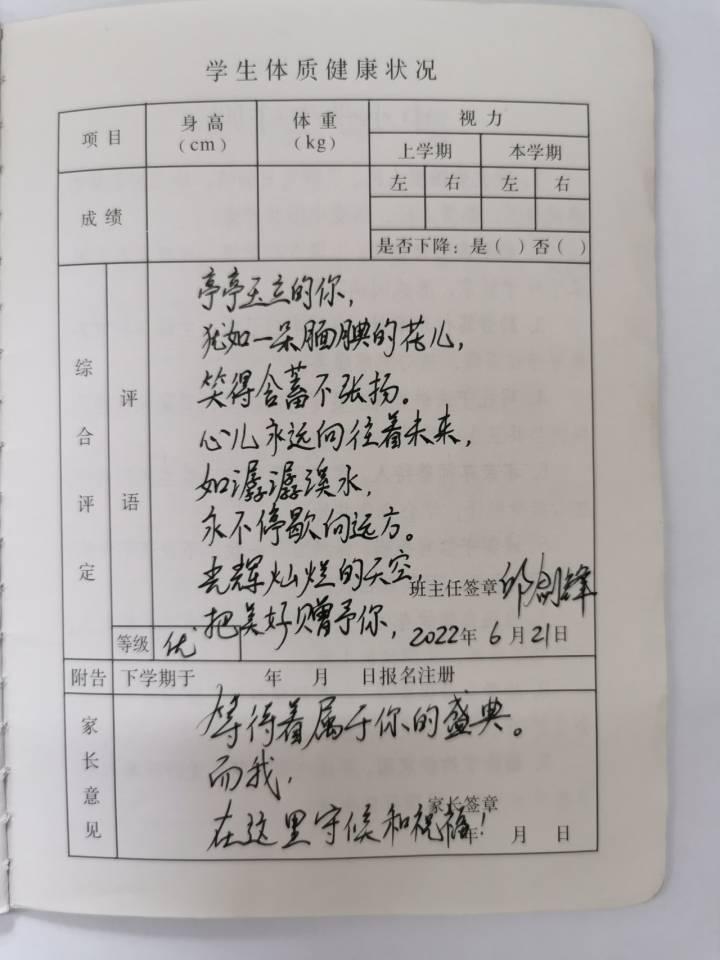 学生体质健康状况
项目 身高(cm) 体重(kg) 视力
上学期 本学期
左 右 左 右
成绩
是否下降：是（ ）否（ ）
综合评定 评语
亭亭玉立的你，
犹如一朵腼腆的花儿，
笑得含蓄不张扬。
心儿永远向往着未来，
如潺潺溪水，
永不停歇向远方。
光辉灿烂的天空，
班主任签章 邱剑锋
把美好赠予你，
2022年6月21日
等级 优
附告 下学期于 年 月 日报名注册
家长意见
等待着属于你的盛典。
而我，
家长签章
在这里守候和祝福！
年 月 日